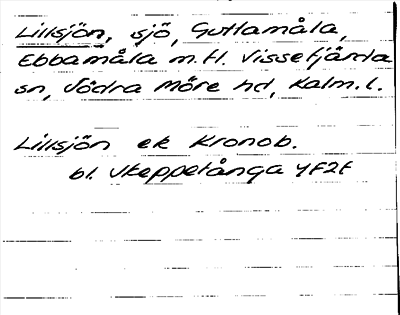 Lillsjön, sjö, Guttamåla,
Ebbamåla m.fl. Vissefjärda
sn, Södra Möre hd, Kalm. l.
Lillsjön ek Kronob.
bl. Skeppelånga 4F2f